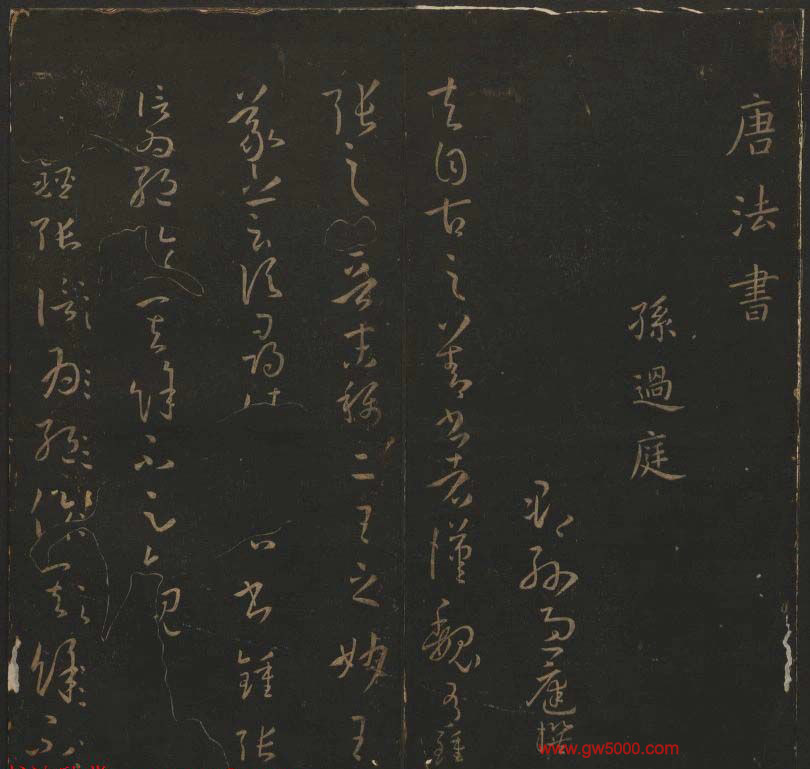 唐法書
孫過庭
郡孫過庭撰
夫自古之善書者漢魏有鍾
張之晉末稱二王之妙王
羲之云頃尋書鍾張
信為絕倫其餘不足觀
鍾張信為絕倫其餘不
www.gw5000.com